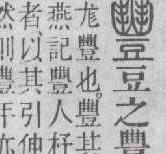 豐豆之豐
尨豐也。豐其
燕記豐人杼
者、以其引伸
然則豐年亦